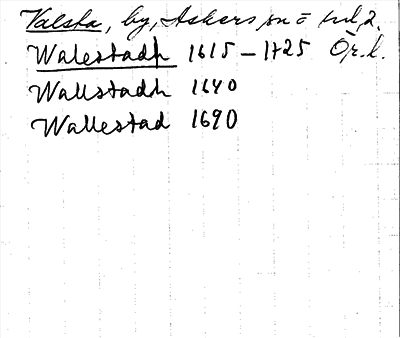 Valsta, by, Askers sn o hd, 2.
Walestadh 1615 – 1725 Ör. l.
Wallstadh 1640
Wallestad 1690